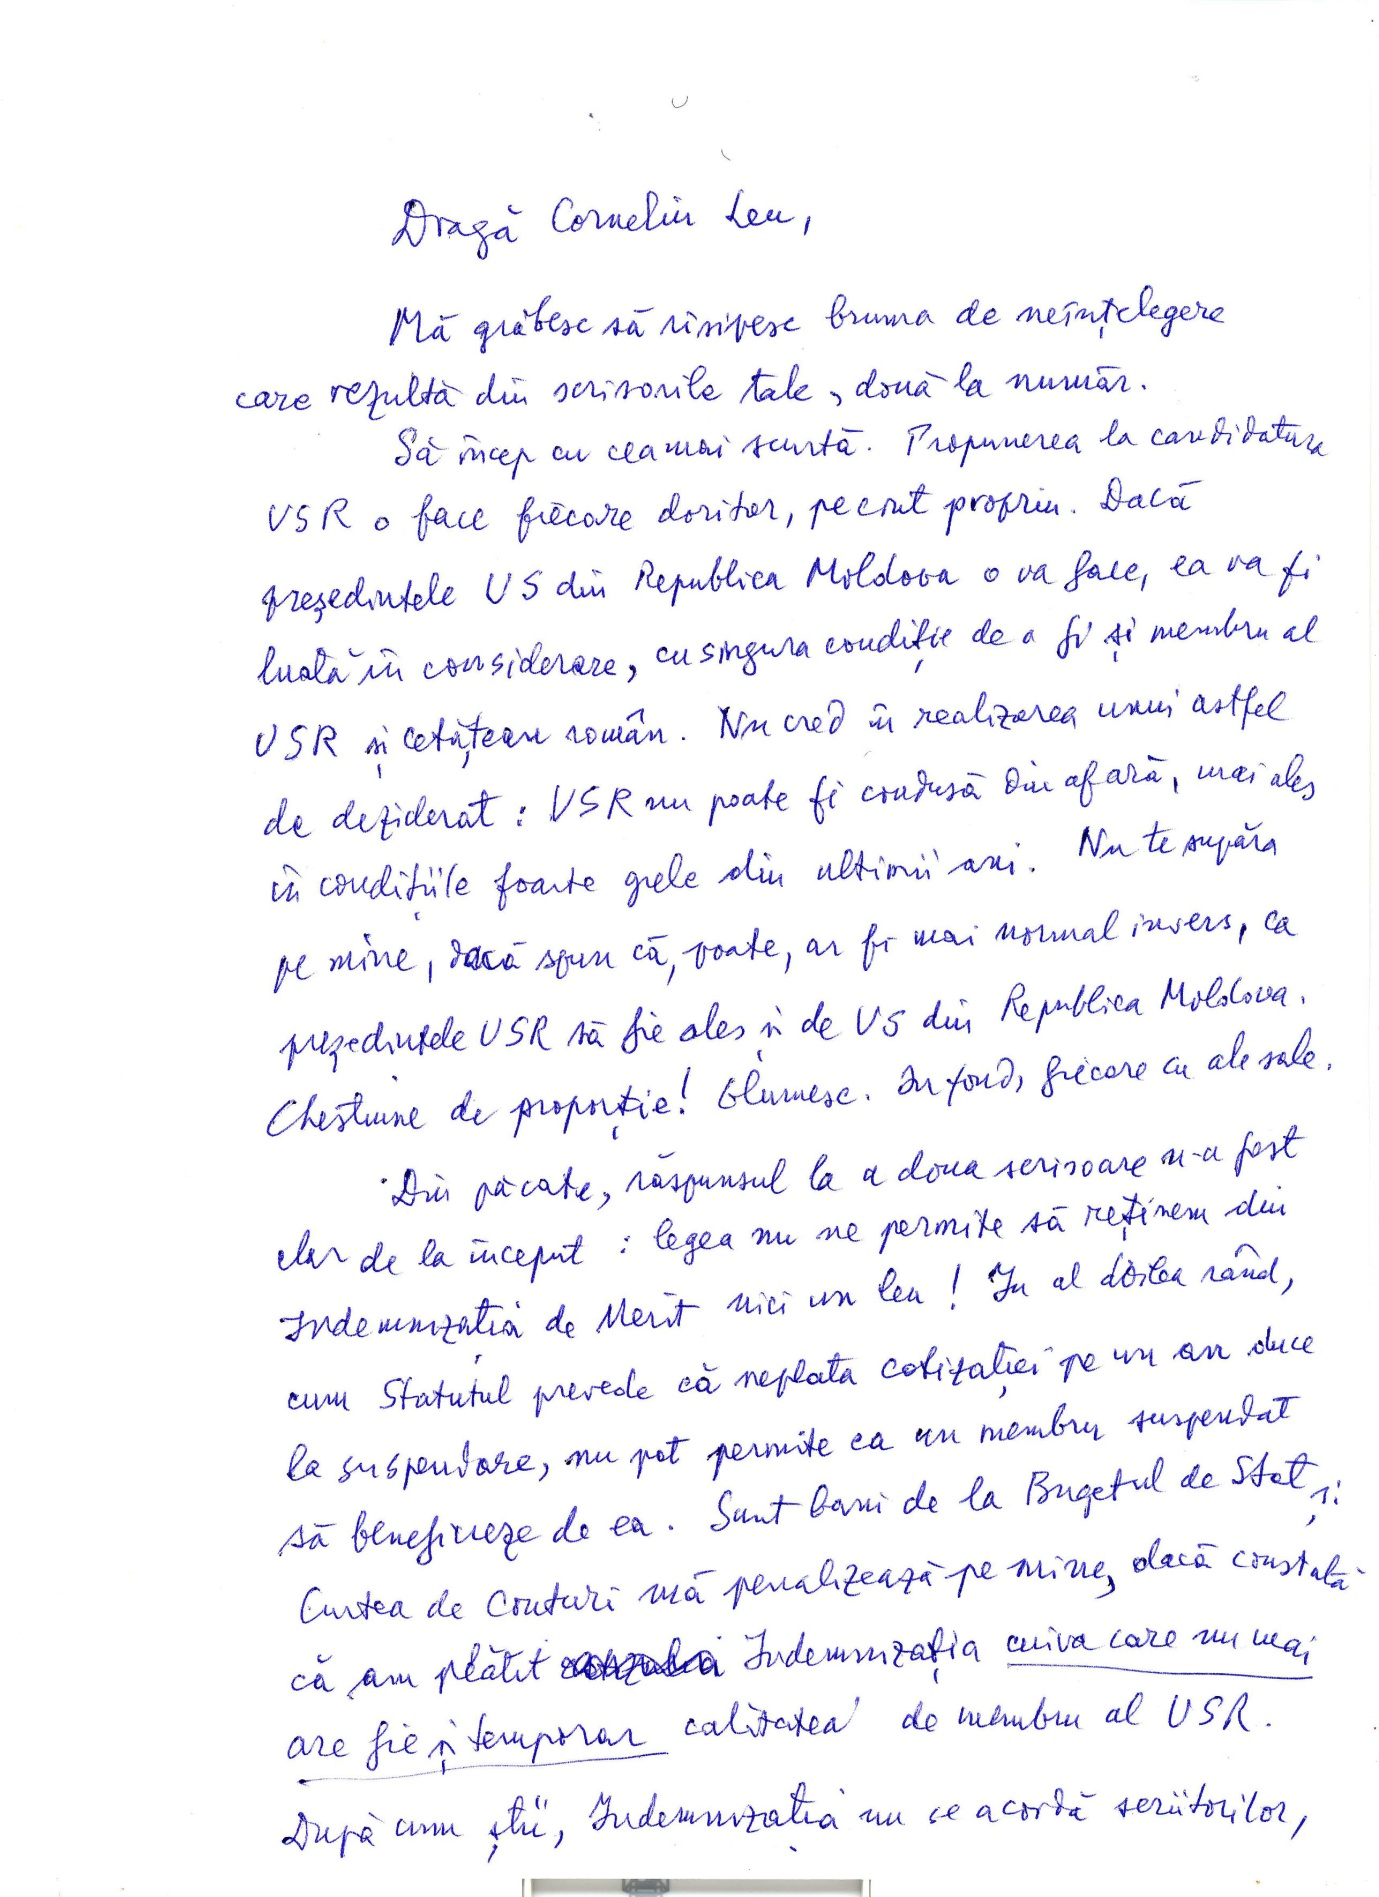 Dragă Corneliu Leu,
Mă grăbesc să risipesc bruma de neînțelegere
care rezultă din scrisorile tale, două la număr.
Să încep cu cea mai scurtă. Propunerea la candidatura
USR o face fiecare doritor, pe cont propriu. Dacă
președintele US din Republica Moldova o va face, ea va fi
luată în considerare, cu singura condiție de a fi și membru al
USR și cetățean român. Nu cred în realizarea unui astfel
de deziderat: USR nu poate fi condusă din afară, mai ales
în condițiile foarte grele din ultimii ani. Nu te supăra
pe mine, dacă spun că, poate, ar fi mai normal invers, ca
președintele USR să fie ales și de US din Republica Moldova.
Chestiune de proporție! Glumesc. În fond, fiecare cu ale sale.
Din păcate, răspunsul la a doua scrisoare n-a fost
clar de la început: legea nu ne permite să reținem din
Indemnizația de Merit nici un leu! În al doilea rând,
cum Statutul prevede că neplata cotizației pe un an duce
la suspendare, nu pot permite ca un membru suspendat
să beneficieze de ea. Sunt bani de la Bugetul de Stat și
Curtea de Conturi mă penalizează pe mine, dacă constată
că am plătit Indemnizația cuiva care nu mai
are fie și temporar calitatea de membru al USR.
După cum știi, Indemnizația nu se acordă scriitorilor,